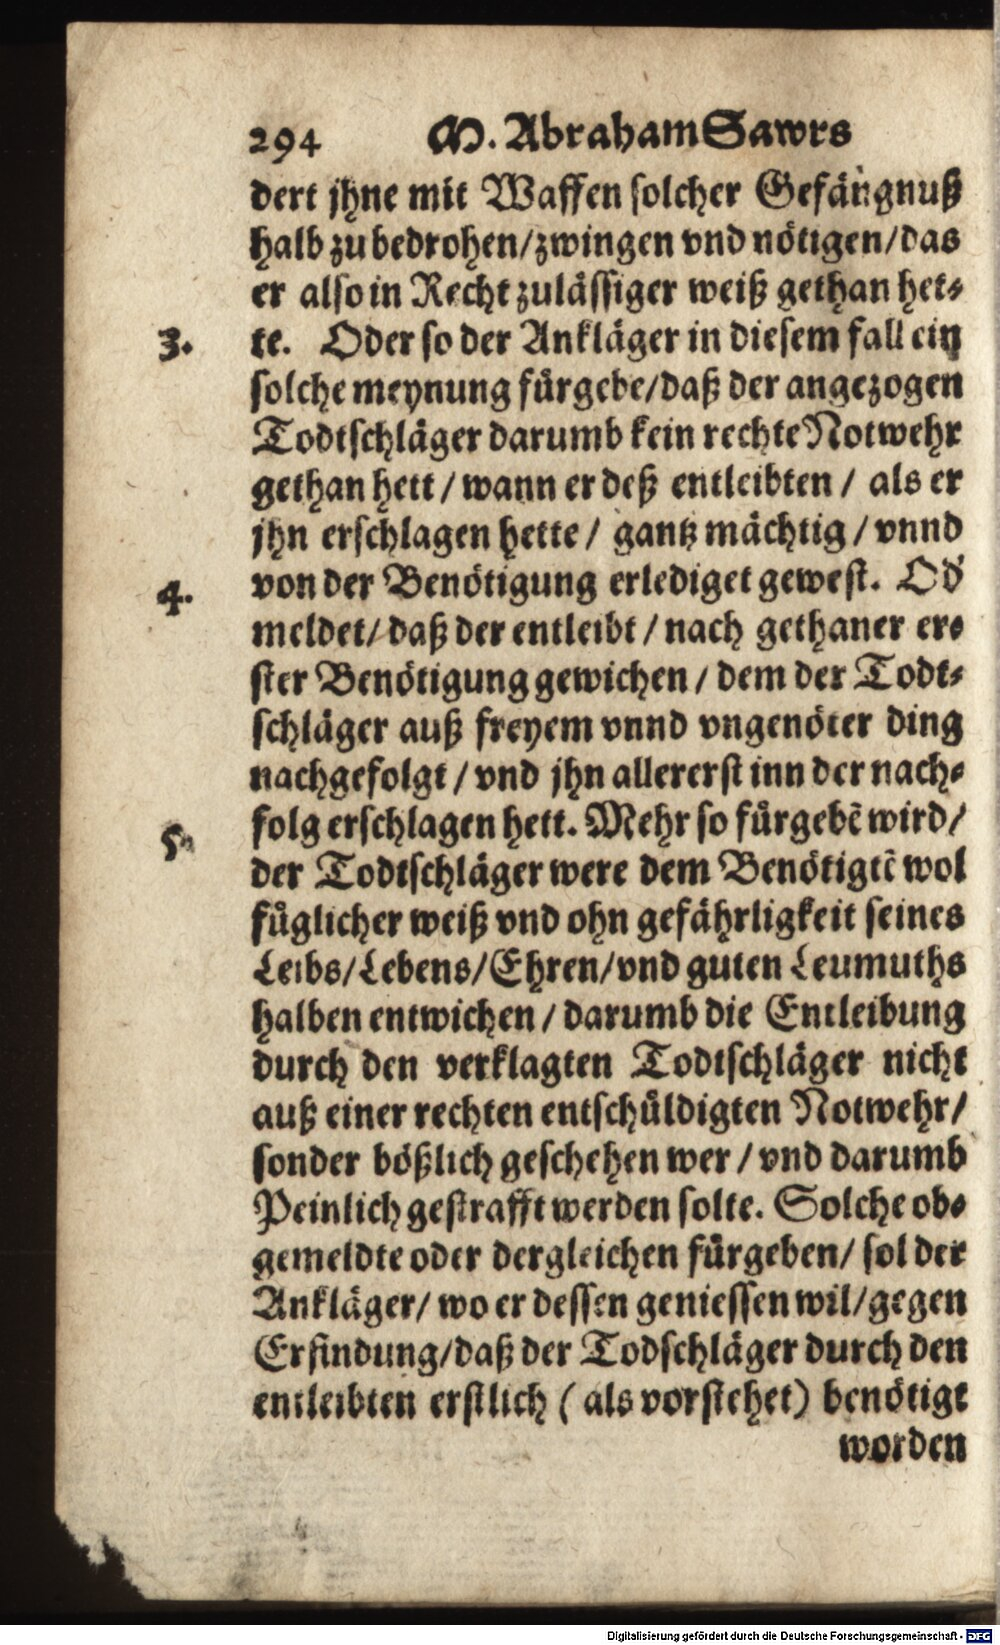 294 M. Abraham Sawrs
dert jhne mit Waffen solcher Gefängnuß
halb zu bedrohen/zwingen vnd nötigen/das
er also in Recht zulässiger weiß gethan het-
3. te. Oder so der Ankläger in diesem fall ein
solche meynung fürgebe/daß der angezogen
Todtschläger darumb kein rechte Notwehr
gethan hett/ wann er deß entleibten/ als er
jhn erschlagen hette/ gantz mächtig/ vnnd
4. von der Benötigung erlediget gewest. Od̕
meldet/ daß der entleibt/ nach gethaner er-
ster Benötigung gewichen/ dem der Todt-
schläger auß freyem vnnd vngenöter ding
nachgefolgt/ vnd jhn allererst inn der nach-
5. folg erschlagen hett. Mehr so fürgebẽ wird/
der Todtschläger were dem Benötigtẽ wol
füglicher weiß vnd ohn gefährligkeit seines
Leibs/Lebens/Ehren/vnd guten Leumuths
halben entwichen/ darumb die Entleibung
durch den verklagten Todtschläger nicht
auß einer rechten entschüldigten Notwehr/
sonder bößlich geschehen wer/ vnd darumb
Peinlich gestrafft werden solte. Solche ob-
gemeldte oder dergleichen fürgeben/ sol der
Ankläger/ wo er dessen geniessen wil/gegen
Erfindung/daß der Todschläger durch den
entleibten erstlich (als vorstehet) benötigt
worden
Digitalisierung gefördert durch die Deutsche Forschungsgemeinschaft - DFG